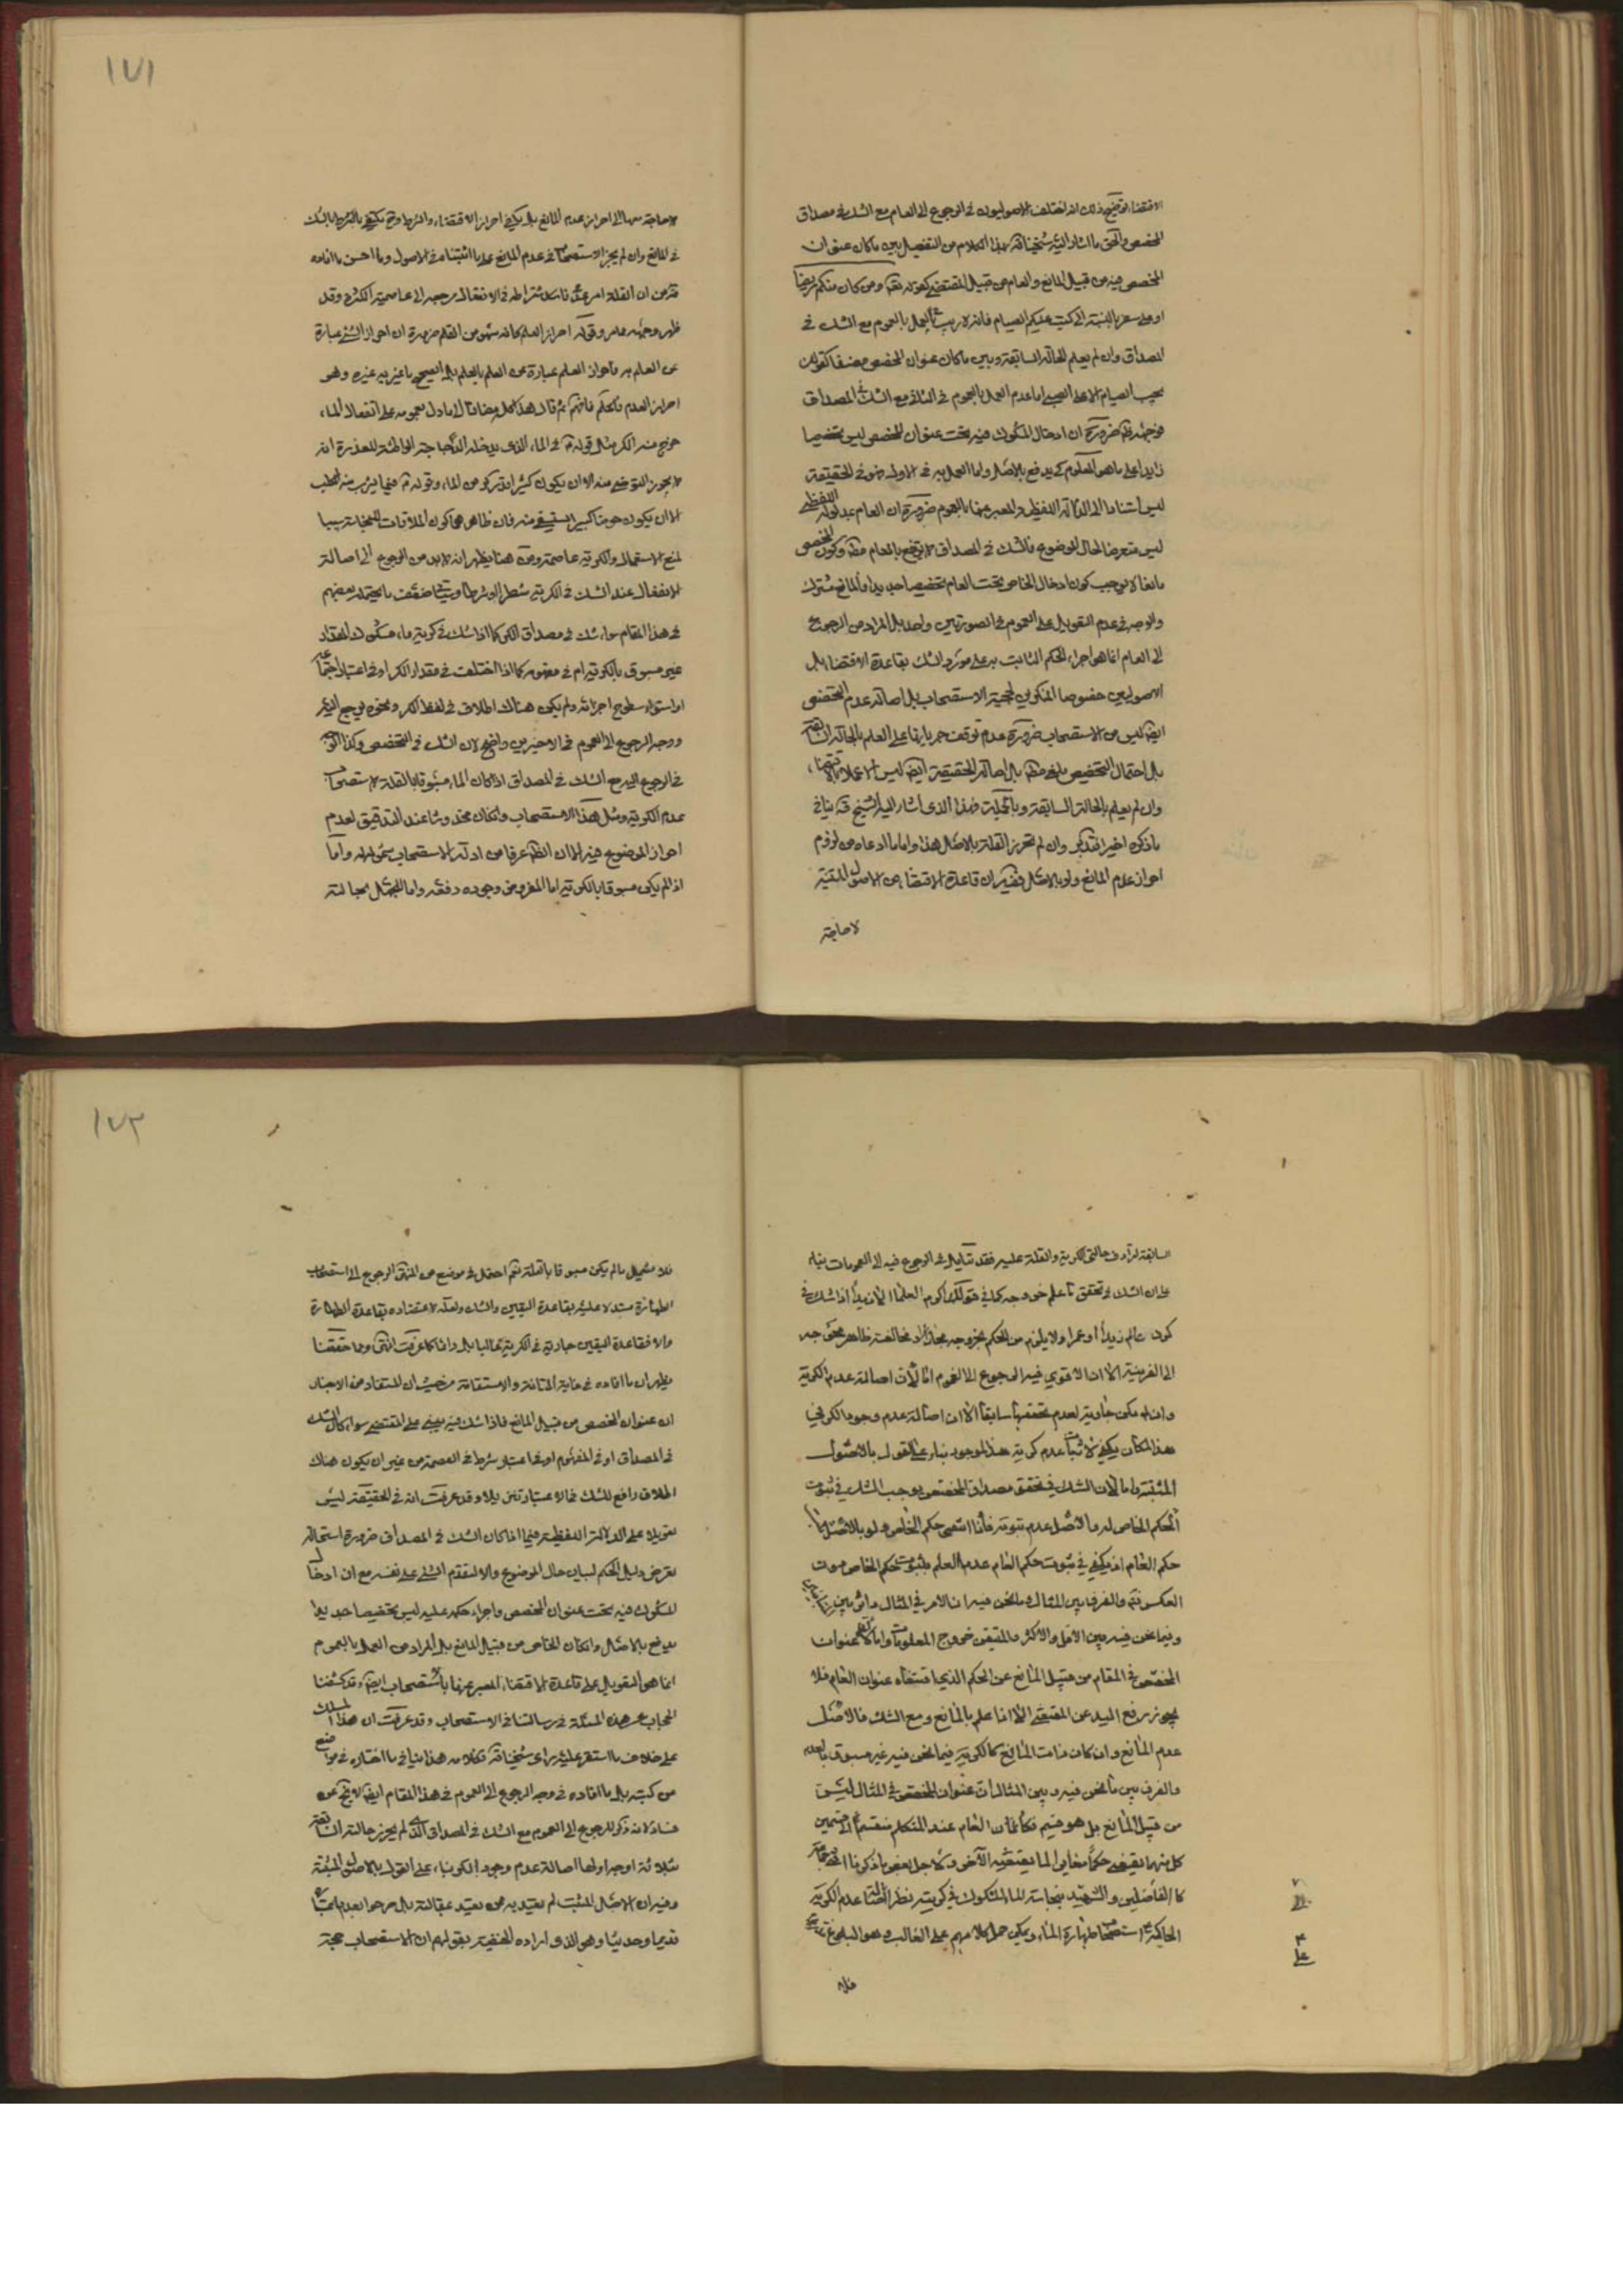 ١٧١
الاقتضاء توضيح ذلك انه اختلف الاصوليون في الرجوع الى العام مع الشك في مصداق
المخصص والحق ما اشار اليه شيخنا قه بهذا الكلام من التفصيل بين ما كان عنوان
المخصص فيه من قبيل المانع والعام من قبيل المقتضي كقوله تعه ومن كان منكم مريضا
او على سفر بالنسبة الى كتب عليكم الصيام فانه لا ريب في العمل بالعموم مع الشك في
المصداق وان لم يعلم الحالة السابقة وبين ما كان عنوان المخصص مصنفا كقولك
يجب الصيام الا على الصبي اما عدم العمل بالعموم في الثاني مع الشك في المصداق
فوجهه ضرورة ان ادخال المشكوك فيه تحت عنوان المخصص ليس تخصيصا
زايدا على ما هو المعلوم كي يدفع بالاصل واما العمل به في الاول فهو في الحقيقة
ليس استنادا الى الدلالة اللفظية والمعبر عنها بالعموم ضرورة ان العام بمدلوله اللفظي
ليس متعرضا لحال الموضوع فالشك في المصداق لا يرتفع بالعام وكون المخصص
مانعا لا يوجب كون ادخال الخاص تحت العام تخصيصا جديدا والمانع
والوجه في عدم التعويل على العموم في الصورتين واحد بل المراد من الرجوع
الى العام انما هو اجراء الحكم الثابت به على مورد الشك بقاعدة الاقتضاء بل
الاصوليين خصوصا المنكرين لحجية الاستصحاب بل اصالة عدم التخصيص
ايضا ليس من الاستصحاب ضرورة عدم توقف جريانها على العلم بالحالة السابقة
بل احتمال التخصيص بل اصالة الحقيقة ايضا ليس الا
وان لم يعلم بالحالة السابقة وبالجملة فهذا الذي اشار اليه الشيخ قه ينافي
ما ذكره اخيرا فتدبر وان لم تحرز القلة بالاصل هذا واما ما ادعاه من لزوم
احراز عدم المانع ولو بالاصل ففيه ان قاعدة الاقتضاء من الاصول المتينة
لا حاجة
لا حاجة بها الى احراز عدم المانع بل يكفي احراز الاقتضاء والشرط
في المانع وان لم يجز الاستصحاب في عدم المانع على ما اثبتناه في الاصول وما احسن ما افاده
من ان القلة امر عدمي فاشتراطه في الانفعال مرجعه الى عاصمية الكثرة وقد
ظهر وجهه مما مر وقوله احراز العلم كانه سهو من القلم ضرورة ان احراز الشيء عبارة
عن العلم به فاحراز العلم عبارة عن العلم بالعلم بل الصحيح ما عبر به غيره وهو
احراز العدم فافهم ثم قال هذا كله مضافا الى ما دل بعمومه على انفعال الماء
خرج منه الكر مثل قوله في الماء الذي يدخله الدجاجة الواطئة للعذرة انه
لا يجوز التوضي منه الا ان يكون كثيرا قدر كر من الماء وقوله فيما يشرب منه الكلب
الا ان يكون حوضا كبيرا يستسقى منه فان ظاهرهما كون الملاقات للنجاسة سببا
لمنع الاستعمال والكرية عاصمة ومن هنا يظهر انه لا بد من الرجوع الى اصالة
الانفعال عند الشك في الكرية شطرا او شرطا وتبين ضعف ما يحتمله بعضهم
في هذا المقام سواء شك في مصداق الكر كما اذا شك في كرية ماء مشكوك المقدار
غير مسبوق بالكرية ام في مفهومه كما اذا اختلف في مقدار الكر او في اعتبار اجتماع
او استواء سطوح اجزائه ولم يكن هناك اطلاق في لفظ الكر ونحوه يرجع اليه
ووجه الرجوع الى العموم في الاخيرين واضح لان الشك في التخصيص وكذا الوجه
في الرجوع اليه مع الشك في المصداق اذا كان الماء مسبوقا بالقلة لاستصحاب
عدم الكرية ومثل هذا الاستصحاب وان كان مخدوشا عند التدقيق لعدم
احراز الموضوع فيه الا ان الظاهر عرفا من ادلة الاستصحاب شموله له واما
اذا لم يكن مسبوقا بالكرية اما لفرض وجوده دفعة واما للجهل بحالته
١٧٢
السابقة لترادف حالتي الكرية والقلة عليه فقد يتامل في الرجوع فيه الى العمومات بناء
على ان الشك في تحقق ما علم خروجه كما في قولك اكرم العلماء الا زيدا اذا شك في
كون عالم زيدا او عمرا ولا يلزم من الحكم بخروجه مجاز او مخالفة ظاهر محوجة
الى القرينة الا ان الاقوى فيه الرجوع الى العموم اما لان اصالة عدم الكرية
وان لم تكن جارية لعدم تحققها سابقا الا ان اصالة عدم وجود الكر في
هذا المكان يكفي لاثبات عدم كرية هذا الموجود بناء على القول بالاصول
المثبتة واما لان الشك في تحقق مصداق المخصص يوجب الشك في ثبوت
الحكم الخاص له والاصل عدم ثبوته فاذا انتفى حكم الخاص ولو بالاصل
حكم العام اذ يكفي في ثبوت حكم العام عدم العلم بثبوت حكم الخاص دون
العكس فتم والفرق بين المثال وما نحن فيه ان الامر في المثال دائر بين
وفيما نحن فيه بين الاقل والاكثر والمتيقن خروج المعلومات واما لان عنوان
المخصص في المقام من قبيل المانع عن الحكم الذي اقتضاه عنوان العام فلا
يجوز رفع اليد عن المقتضي الا اذا علم بالمانع ومع الشك فالاصل
عدم المانع وان كان ذات المانع كالكرية فيما نحن فيه غير مسبوق بالعدم
والفرق بين ما نحن فيه وبين المثال ان عنوان المخصص في المثال ليس
من قبيل المانع بل هو قسيم فكان العام عند المتكلم منقسم الى قسمين
كل منهما يقتضي حكما مغايرا لما يقتضيه الآخر ولاجل بعض ما ذكرنا
كالفاضلين والشهيد بنجاسة الماء المشكوك في كريته نظرا الى اصالة عدم الكرية
الحاكمة على استصحاب طهارة الماء ويمكن حمل كلامهم على الغالب وهو
فلا
فلا يشمل ما لم يكن مسبوقا بالقلة نعم احتمل في موضع من المنتهى الرجوع الى استصحاب
الطهارة مستدلا عليه بقاعدة اليقين والشك ولعله لاعتضاده بقاعدة الطهارة
والا فقاعدة اليقين جارية في الكرية غالبا بل دائما كما عرفت انتهى ومما حققنا
يظهر ان ما افاده في غاية المتانة والاستقامة من حيث ان المستفاد من الاخبار
ان عنوان المخصص من قبيل المانع فاذا شك فيه يبنى على المقتضي سواء كان الشك
في المصداق او في المفهوم او في اعتبار شرط في العصمة من غير ان يكون هناك
اطلاق رافع للشك
تعويلا على الدلالة اللفظية فيما اذا كان الشك في المصداق ضرورة استحالة
تعرض دليل الحكم لبيان حال الموضوع والا لتقدم الشيء على نفسه مع ان ادخال
المشكوك فيه تحت عنوان المخصص واجراء حكمه عليه ليس تخصيصا جديدا
يدفع بالاصل وان كان الخاص من قبيل المانع بل المراد من العمل بالعموم
انما هو التعويل على قاعدة الاقتضاء المعبر عنها باستصحاب ايضا وقد كشفنا
الحجاب عن هذه المسئلة في رسالتنا في الاستصحاب وقد عرفت ان هذا المسلك
على خلاف ما استقر عليه راى شيخنا قه فكلامه هذا ينافي ما اختاره في مواضع
من كتبه بل ما افاده في وجه الرجوع الى العموم في هذا المقام ايضا لا يخ عن
فساد لانه ذكر للرجوع الى العموم مع الشك في المصداق الذي لم يحرز حالته السابقة
ثلاثة اوجه اولها اصالة عدم وجود الكر بناء على القول بالاصول المثبتة
وفيه ان الاصل المثبت لم يعتد به من يعتد بمقالته بل صرحوا بعدم
قديما وحديثا وهو الذي اراده الحنفية بقولهم ان الاستصحاب حجة